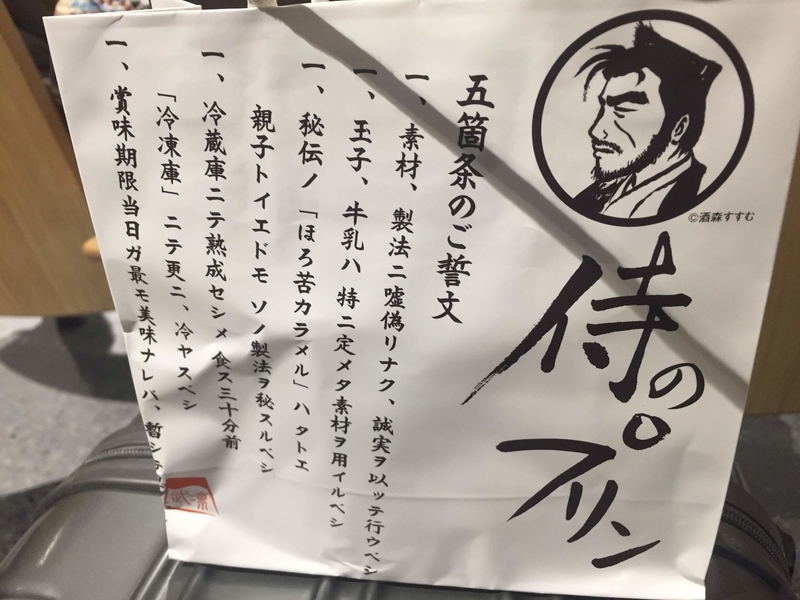 ©酒森すすむ
侍のプリン
五箇条のご誓文
一、素材、製法ニ嘘偽リナク、誠実ヲ以ッテ行ウベシ
一、玉子、牛乳ハ 特ニ定メタ素材ヲ用イルベシ
一、秘伝ノ「ほろ苦カラメル」ハ タトエ
親子トイエドモ ソノ製法ヲ秘スルベシ
一、冷蔵庫ニテ熟成セシメ 食ス三十分前
「冷凍庫」ニテ更ニ、冷ヤスベシ
一、賞味期限当日ガ最モ美味ナレバ、暫シ